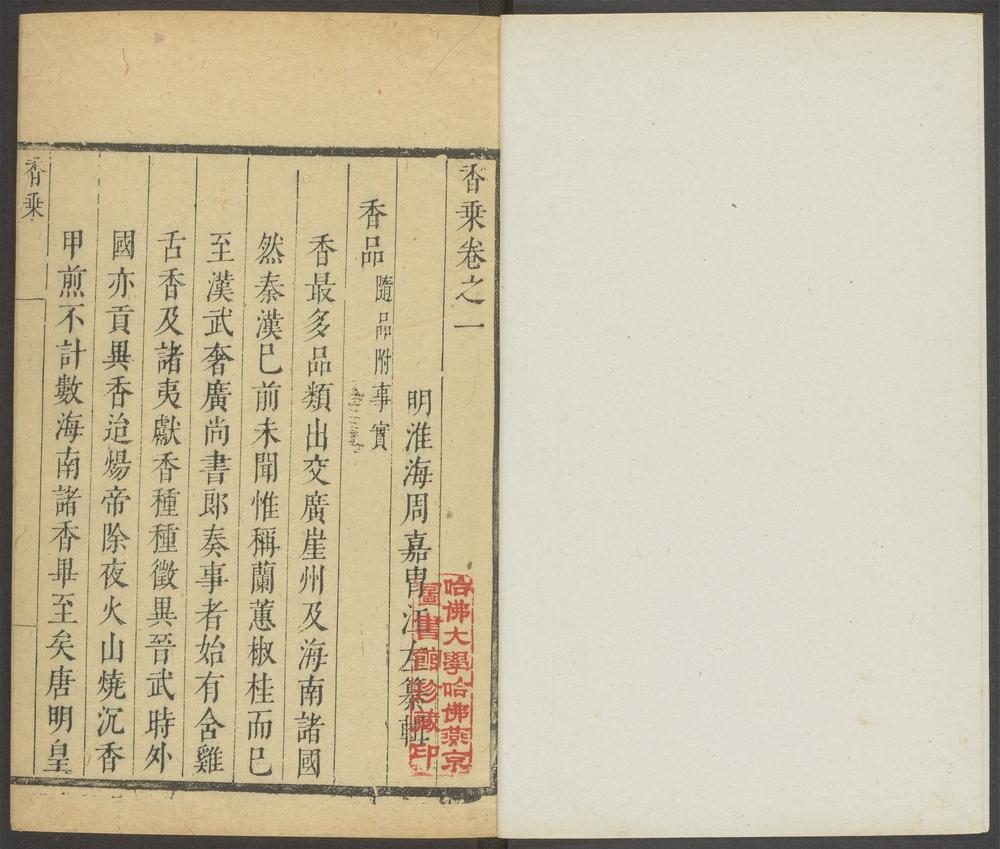 香乗卷之一
明淮海周嘉胄江左纂輯
香品 隨品附事實
香最多品類出交廣崖州及海南諸國
然秦漢已前未聞惟稱蘭蕙椒桂而已
至漢武奢廣尚書郎奏事者始有含雞
舌香及諸夷獻香種種徵異晉武時外
國亦貢異香迨煬帝除夜火山燒沉香
甲煎不計數海南諸香畢至矣唐明皇
香乗
哈佛大學哈佛燕京
圖書館珍藏印